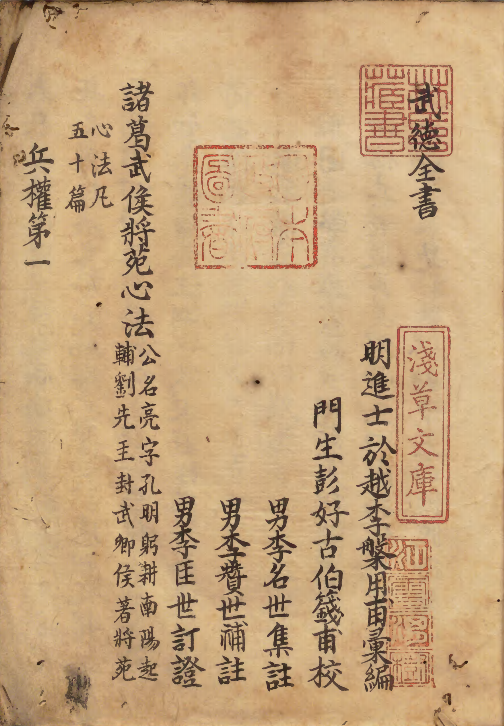 武德全書
淺草文庫
日本政府圖書
明進士於越李槃用甫彙編
門生彭好古伯籛甫校
男李名世集註
男李贊世補註
男李匡世訂證
諸葛武侯將苑心法
公名亮字孔明躬耕南陽起
輔劉先王封武鄉侯著將苑
心法凡
五十篇
兵權第一